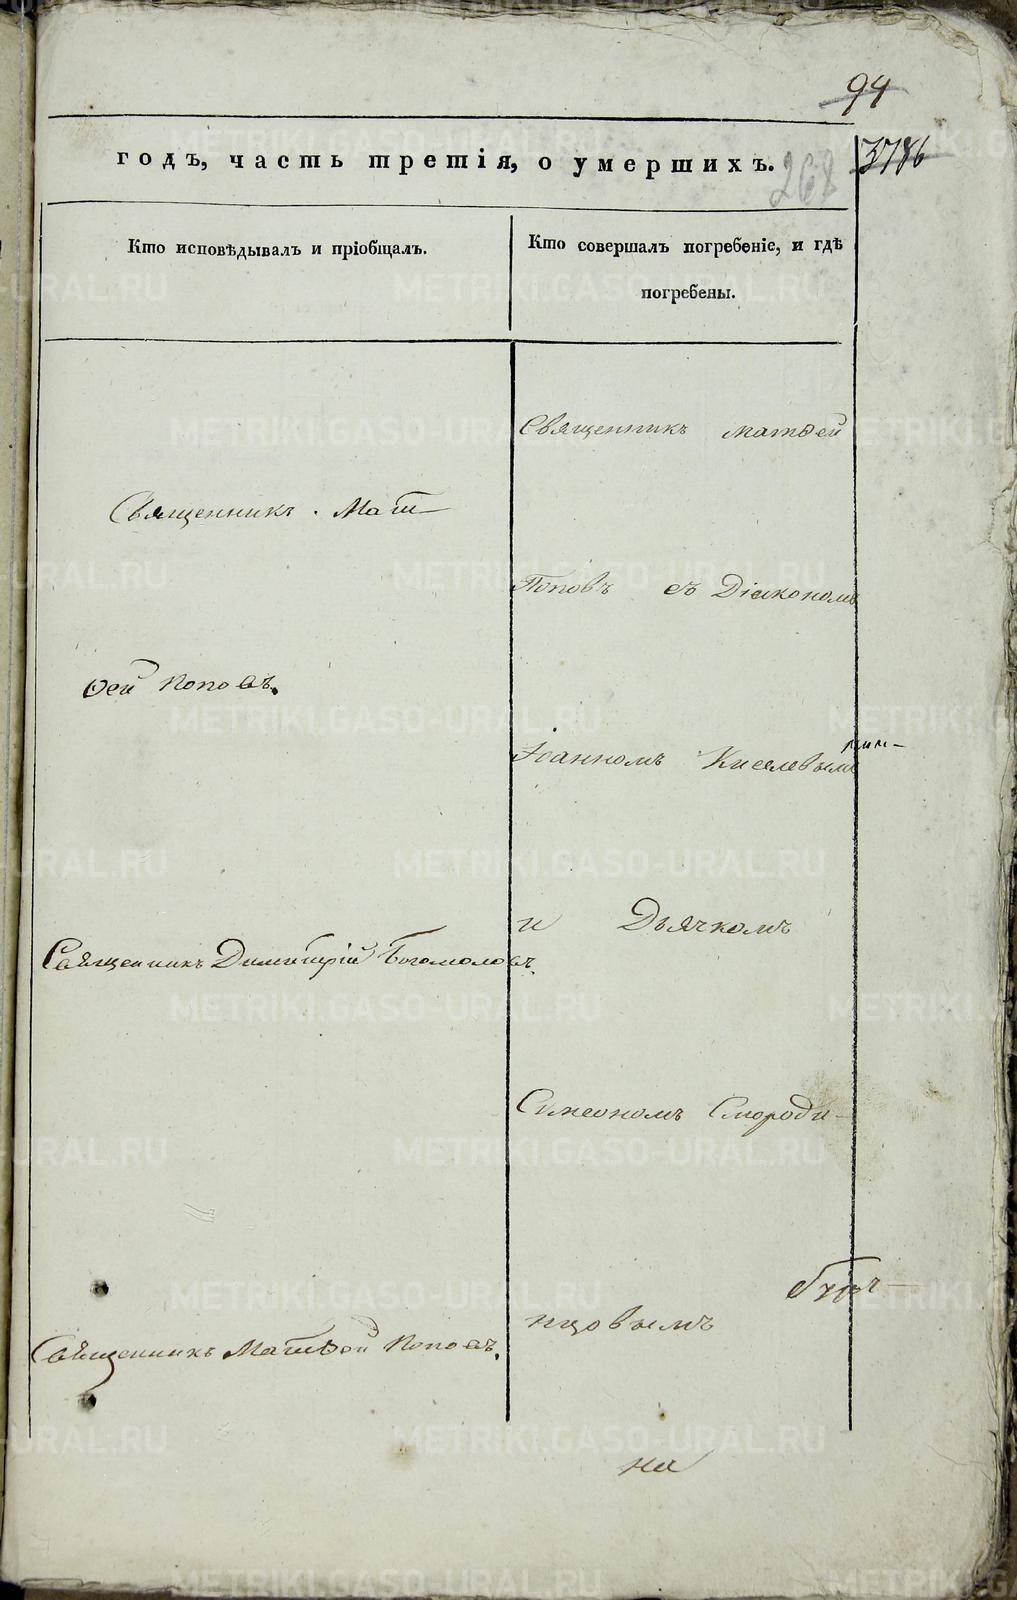 94
годъ, часть третія, о умершихъ.
268
Кто исповѣдывалъ и пріобщалъ.
Кто совершалъ погребеніе, и гдѣ
погребены.
Священникъ Мат
ѳей Поповъ.
Священникъ Димитрій Богомоловъ.
Священникъ Матѳей Поповъ.
Священникъ Матѳей
Поповъ съ Діакономъ
Іоанномъ Киселевымъ
и Дьячкомъ
Симеономъ Смороди-
нцовымъ
на
METRIKI.GASO-URAL.RU